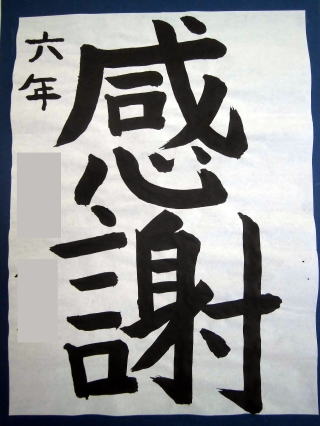 感謝
六年